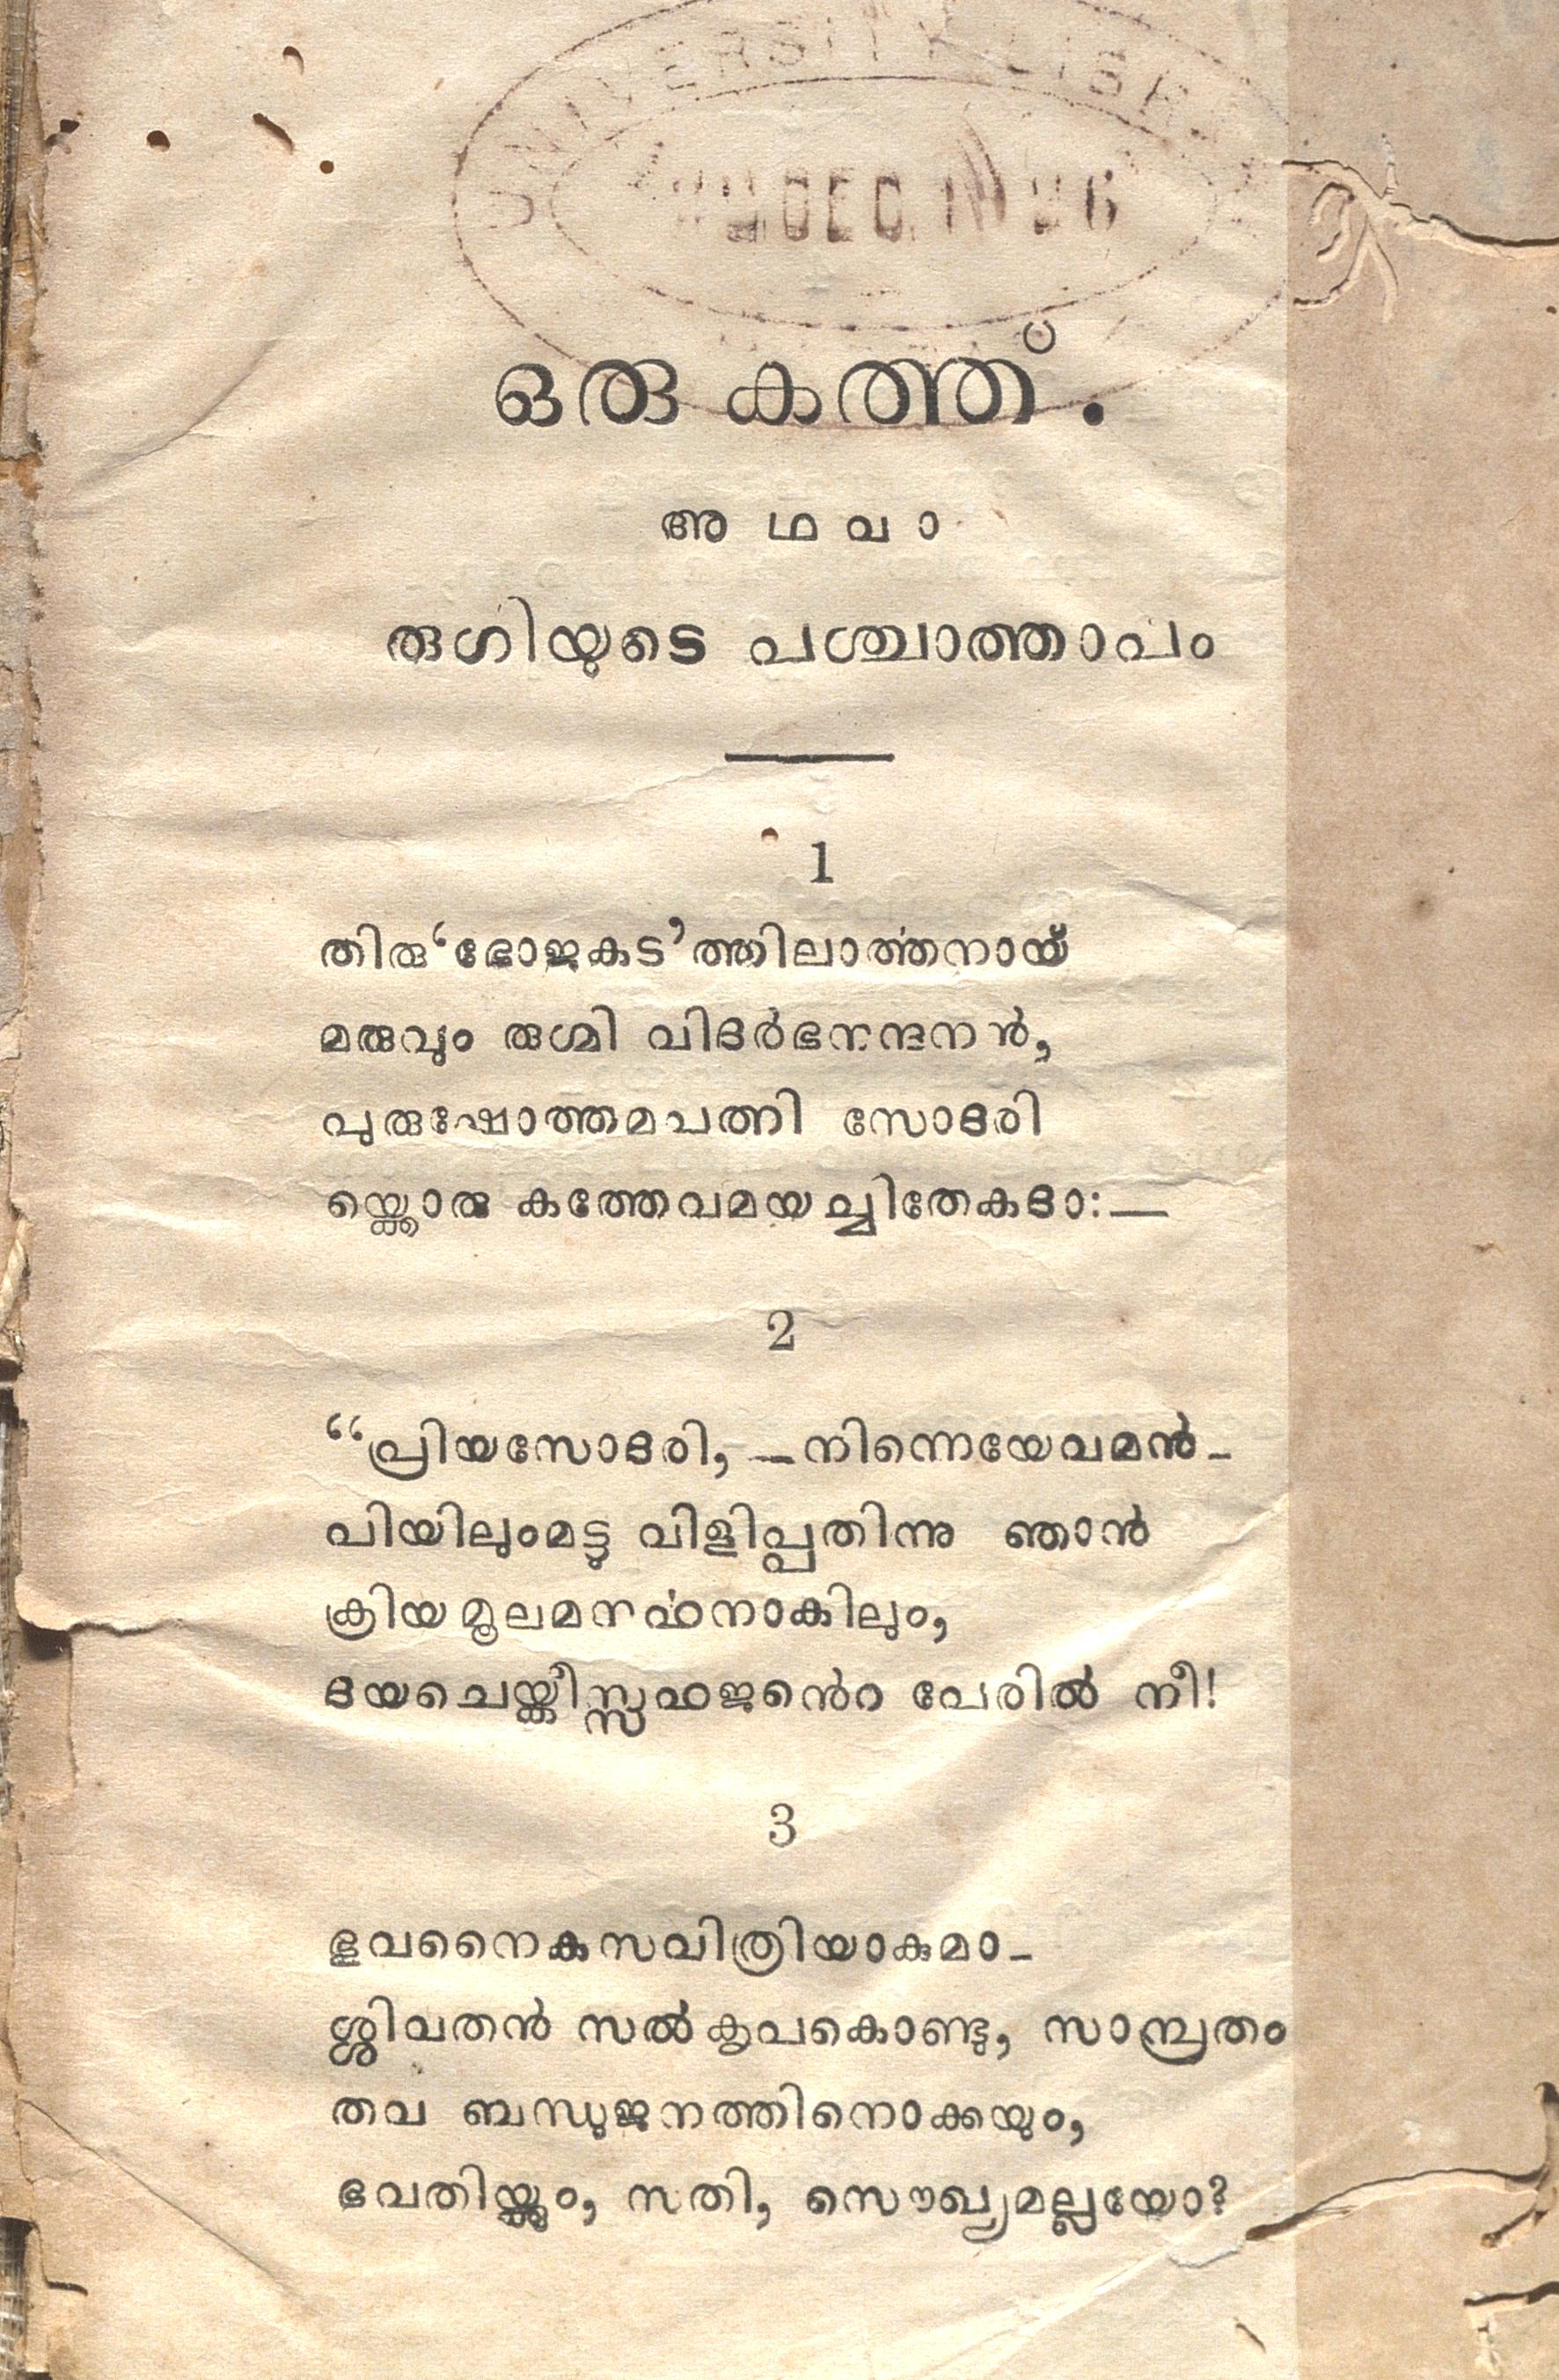 UNIVERSITY LIBR
DEC
ഒരു കത്ത്.
അഥവാ
രുഗിയുടെ പശ്ചാത്താപം
1
തിരു‘ഭോജകട’ത്തിലാൎത്തനായ്
മരുവും രുഗ്മി വിദർഭനന്ദനൻ,
പുരുഷോത്തമപത്നി സോദരി
യ്ക്കൊരു കത്തേവമയച്ചിതേകദാ:—
2
“പ്രിയസോദരി, —നിന്നെയേവമൻ-
പിയിലുംമട്ടു വിളിപ്പതിന്നു ഞാൻ
ക്രിയമൂലമനൎഹനാകിലും,
ദയചെയ്കീസ്സഹജൻെറ പേരിൽ നീ!
3
ഭുവനൈകസവിത്രിയാകുമാ-
ശ്ശിവതൻ സൽകൃപകൊണ്ടു, സാമ്പ്രതം
തവ ബന്ധുജനത്തിനൊക്കയും,
ഭവതിയ്ക്കും, സതി, സൌഖ്യമല്ലയോ?